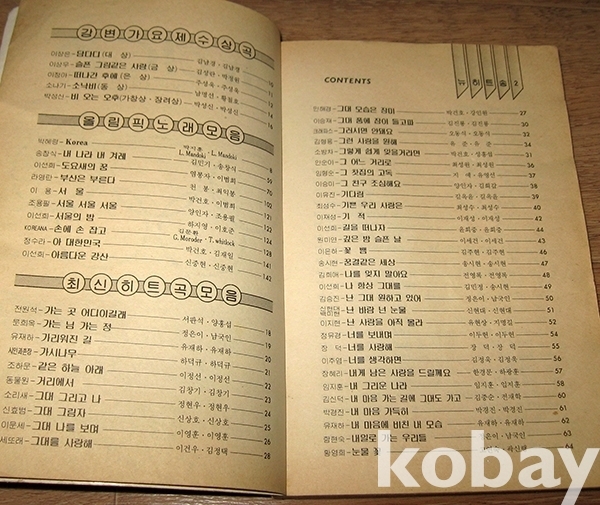 강변가요제수상곡
이상은-담다디(대 상) 김남경·김남경
이상우-슬픈 그림같은 사랑(금 상) 김성란·박정원 16
이창아-떠나간 후에(은 상) 주성욱·주성욱
소나기-소낙비(동 상) 남명선·황필호
박성신-비 오는 오후(가창상·장려상) 박성신·박성신
올림픽노래모음
박혜령-Korea L. Mandoki L. Mandoki 8
송창식-내 나라 내 겨레 김민기·송창식
이선희-도요새의 꿈 염봉자·이범희 55
라영란-부산은 부른다 전 봉·최익봉 121
이 용-서 울 박건호·이범희 124
조용필-서울 서울 서울 양인자·조용필 126
이선희-서울의 밤 하지영·이호준 132
KOREANA-손에 손 잡고 G. Moroder·T. whitlock 134
장수리-아 대한민국 박건호·김재일 141
이선희-아름다운 강산 신중현·신중현 142
최신히트곡모음
전원석-가는 곳 어디이길래 서판석·양홍섭 18
로희욱-가는 님 가는 정 정은이·남국인
유재하-가리워진 길 유재하·유재하 20
시인과촌장-가시나무 하덕규·하덕규 21
조하문-같은 하늘 아래 이정선·이정선 22
동물원-거리에서 김창기·김창기
소리새-그대 그리고 나 정현우·정현우 24
신효범-그대 그림자 신상호·신상호
이문세-그대 나를 보며 이영훈·이영훈 26
세또래-그대를 사랑해 이건우·김정택 28
뉴히트송 2
CONTENTS
민해경-그대 모습은 장미 박건호·강인원 27
이승재-그대 품에 잠이 들고파 김진룡·김진룡 30
그러시면 안돼요 오동식·오동식 31
김형룡-그런 사람을 원해 유 준·유 준 32
소방차-그렇게 쉽게 잊을거라면 박건호·정홍섭
민운아-그 어느 거리로 정은이·남국인
임주연-그 찻집의 고독 지 예·이선재
이승미-그 친구 조심해요 양인자·김희갑
이유진-기다림 김욱을·김욱을
최성수-기쁜 우리 사랑은 최성수·최성수
이재성-기 적 이재성·이재성
이선희-길을 떠나자 윤희중·윤희중
원미연-깊은 밤 슬픈 날 이세건·이세건
이은하-꽃 뱀 김주현·김주현
송시현-꿈결같은 세상 송시현·송시현 49
김희애-나를 잊지 말아요 전영록·전영록 48
이선희-나 항상 그대를 송시현·송시현 50
김승진-난 그대 원하고 있어 정은이·남국인 52
난 바람 넌 눈물 신현대·신현대
이지현-난 사랑을 아직 몰라 유현상·지명길
장유경-너를 보내며 이두현·이두현
장 덕-너를 사랑해 장 덕·장 덕
이주엽-너를 생각하면 김정욱·김정욱
장혜리-내게 남은 사랑을 드릴께요 한경훈·하광훈
임지훈-내 그리운 나라 임지훈·임지훈
김신덕-내 마음 가는 길에 그대도 가고 김중순·전재학 61
박경진-내 마음 가득히 박경진·박경진
유재하-내 마음에 비친 내 모습 유재하·유재하
함현숙-내일로 가는 우리들 정은이·남국인
황영희-눈물 꽃 64
kobay